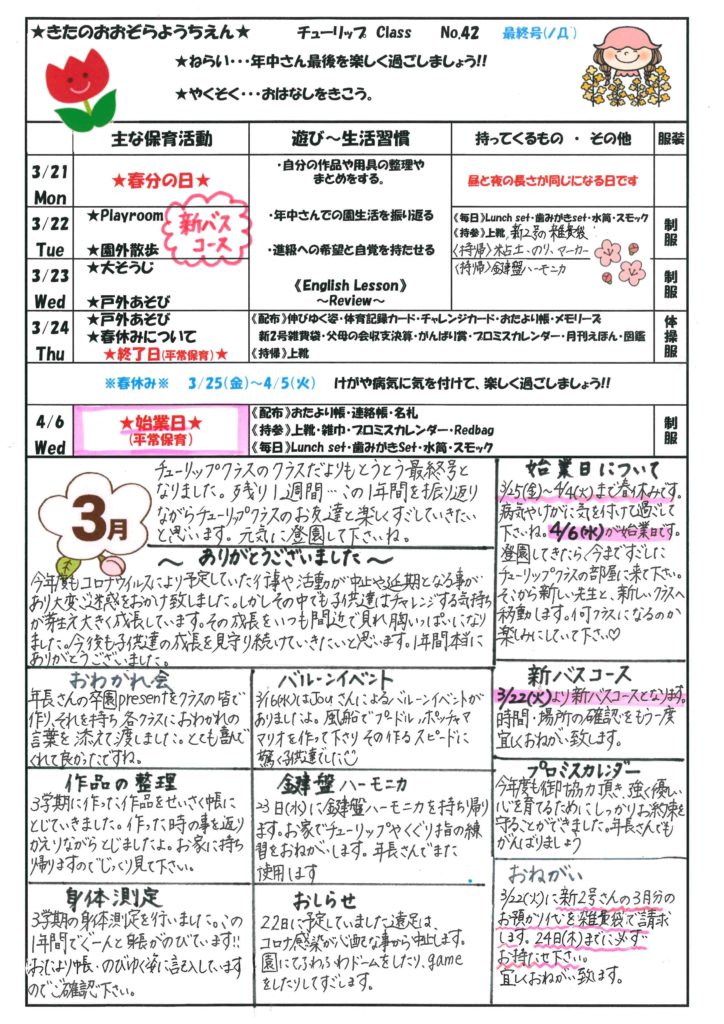 ★きたのおおぞらようちえん★ チューリップ Class No.42 最終号(ﾉД`)
★ねらい・・・年中さん最後を楽しく過ごしましょう!!
★やくそく・・・おはなしをきこう。
主な保育活動 遊び～生活習慣 持ってくるもの ・ その他 服装
3/21 Mon
★春分の日★
・自分の作品や用具の整理や
まとめをする。
昼と夜の長さが同じになる日です
3/22 Tue
★Playroom
★園外散歩
新バス
コース
・年中さんでの園生活を振り返る
・進級への希望と自覚を持たせる
《毎日》Lunch set・歯みがきset・水筒・スモック
《持参》上靴、新2号の雑費袋
〈持帰〉粘土・のり、マーカー
制服
3/23 Wed
★大そうじ
★戸外あそび
《English Lesson》
～Review～
〈持帰〉鍵盤ハーモニカ
制服
3/24 Thu
★戸外あそび
★春休みについて
★終了日(平常保育)★
《配布》伸びゆく姿・体育記録カード・チャレンジカード・おたより帳・メモリーズ
新2号雑費袋・父母の会収支決算・がんばり賞・プロミスカレンダー・月刊えほん・図鑑
《持帰》上靴
体操服
※春休み※ 3/25(金)～4/5(火) けがや病気に気を付けて、楽しく過ごしましょう!!
4/6 Wed
★始業日★
(平常保育)
《配布》おたより帳・連絡帳・名札
《持参》上靴・雑巾・プロミスカレンダー・Redbag
《毎日》Lunch set・歯みがきSet・水筒・スモック
制服
3月
チューリップクラスのクラスだよりもとうとう最終号と
なりました。残り1週間…この1年間を振り返り
ながらチューリップクラスのお友達と楽しくすごしていきたい
と思います。元気に登園して下さいね。
～ ありがとうございました ～
今年度もコロナウイルスにより予定していた行事や活動が中止や延期となる事が
あり大変ご迷惑をおかけ致しました。しかしその中でも子供達はチャレンジする気持ち
が芽生え大きく成長しています。その成長をいつも間近で見れ胸いっぱいになり
ました。今後も子供達の成長を見守り続けていきたいと思います。1年間本当に
ありがとうございました。
始業日について
3/25(金)～4/4(火)まで春休みです。
病気やけがに気を付けて過ごして
下さいね。4/6(水)が始業日です。
登園してきたら、今まですごした
チューリップクラスの部屋に来て下さい。
そこから新しい先生と、新しいクラスへ
移動します。何クラスになるのか
楽しみにしていて下さい♡
おわかれ会
年長さんの卒園presentをクラスの皆で
作り、それを持ち各クラスにおわかれの
言葉を添えて渡しました。とても喜んで
くれて良かったですね。
バルーンイベント
3/16(水)はJouさんによるバルーンイベントが
ありましたよ。風船でプードル、ポッチャマ
マリオを作って下さりその作るスピードに
驚く子供達でした☺
新バスコース
3/22(火)より新バスコースとなります。
時間・場所の確認をもう一度
宜しくおねがい致します。
作品の整理
3学期に作った作品をせいさく帳に
とじていきました。作った時の事を返り
かえりながらとじましたよ。お家に持ち
帰りますのでじっくり見て下さい。
鍵盤ハーモニカ
23日(水)に鍵盤ハーモニカを持ち帰り
ます。お家でチューリップやくぐり指の練
習をおねがいします。年長さんでまた
使用します
プロミスカレンダー
今年度も御協力頂き、強く優しい
心を育てるためにしっかりお約束を
守ることができました。年長さんでも
がんばりましょう
身体測定
3学期の身体測定を行いました。この
1年間でぐーんと身長がのびています!!
おたより帳・のびゆく姿に記入しています
のでご確認下さい。
おしらせ
22日に予定していました遠足は
コロナ感染が心配な事から中止します。
園にてふわふわドームをしたり、game
をしたりしてすごします。
おねがい
3/22(火)に新2号さんの3月分の
お預かり代を雑費袋で請求
します。24日(木)までに必ず
お持たせ下さい。
宜しくおねがい致します。